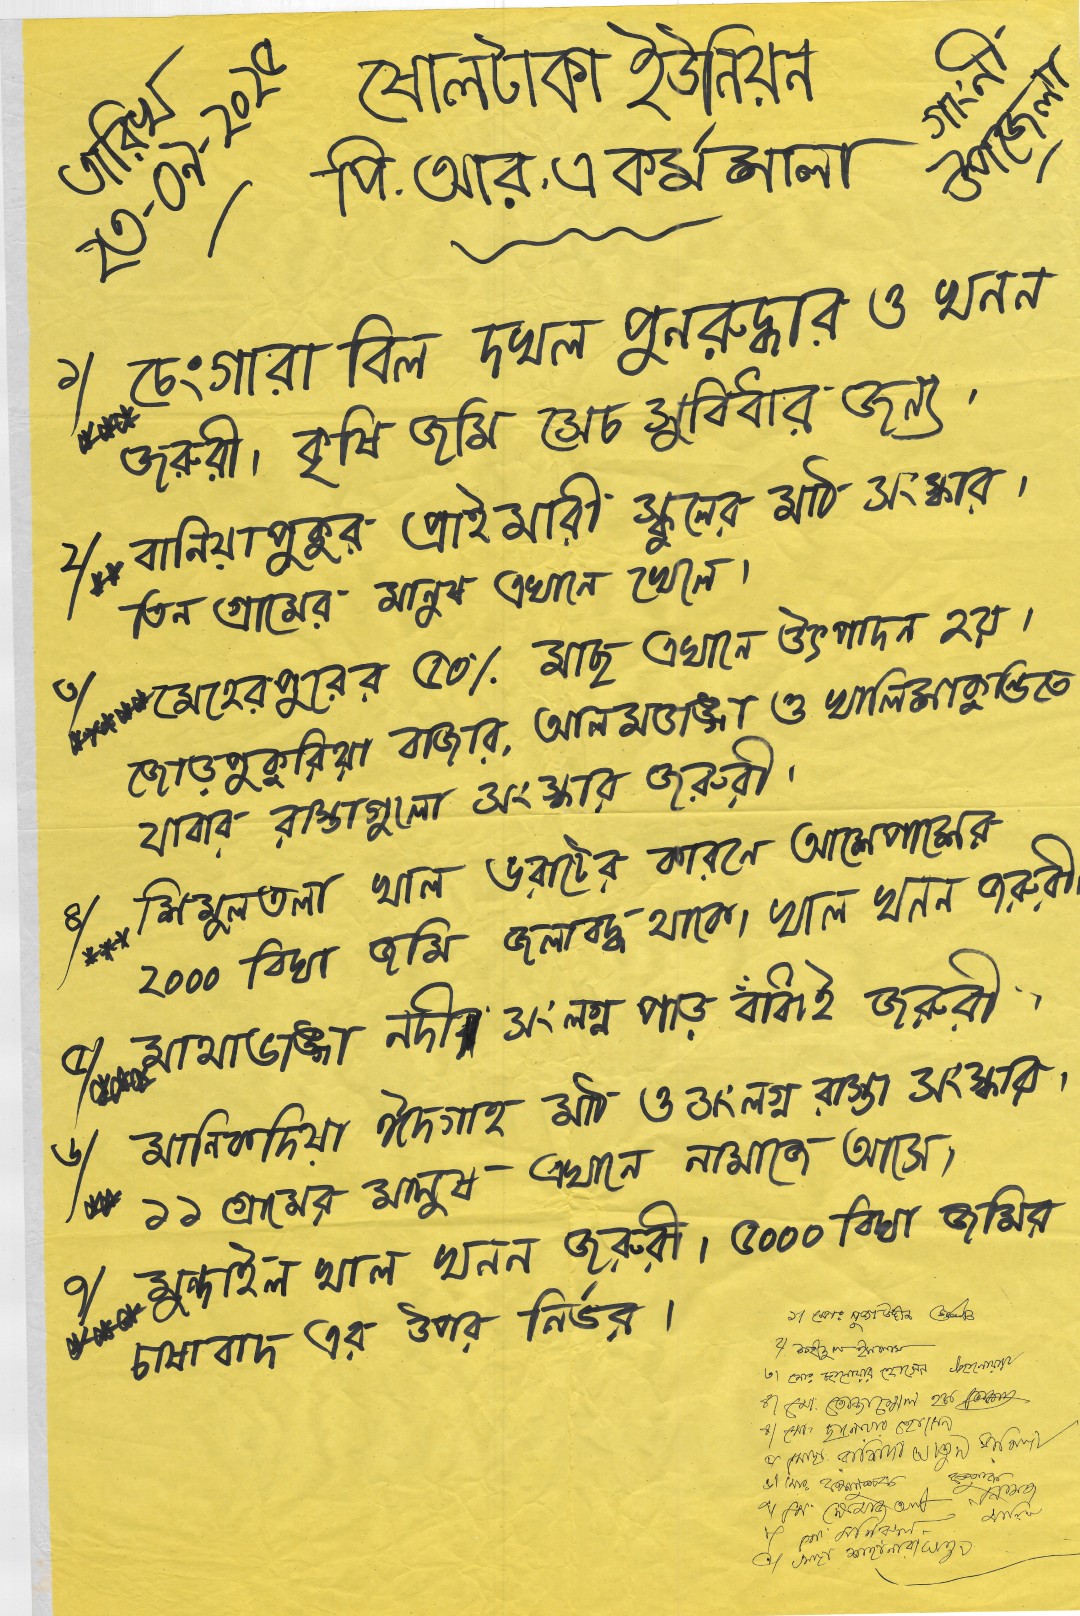 তারিখ
২৩-০৭-২০২৫
ষোলটাকা ইউনিয়ন
গাংনী
উপজেলা
পি.আর.এ কর্মশালা
১/ চেংগারা বিল দখল পুনরুদ্ধার ও খনন
**** জরুরী। কৃষি জমি সেচ সুবিধার জন্য।
২/ ** বানিয়াপুকুর প্রাইমারী স্কুলের মাঠ সংস্কার।
তিন গ্রামের মানুষ এখানে খেলে।
৩/ ****** মেহেরপুরের ৫০% মাছ এখানে উৎপাদন হয়।
জোড়পুকুরিয়া বাজার, আলমডাঙ্গা ও খালিশাকুন্ডিতে
যাবার রাস্তাগুলো সংস্কার জরুরী।
৪/ *** শিমুলতলা খাল ভরাটের কারনে আশেপাশের
২০০০ বিঘা জমি জলাবদ্ধ থাকে। খাল খনন জরুরী।
৫/ **** মাথাভাঙ্গা নদীর সংলগ্ন পাড় বাঁধাই জরুরী।
৬/ মানিকদিয়া ঈদগাহ মাঠ ও সংলগ্ন রাস্তা সংস্কার।
** ১১ গ্রামের মানুষ এখানে নামাজে আসে।
৭/ মুন্দাইল খাল খনন জরুরী। ৫০০০ বিঘা জমির
**** চাষাবাদ এর উপর নির্ভর।
১/ মোঃ
২/ ইসলাম
৩/ মোঃ হোসেন
৪/ মোঃ হক